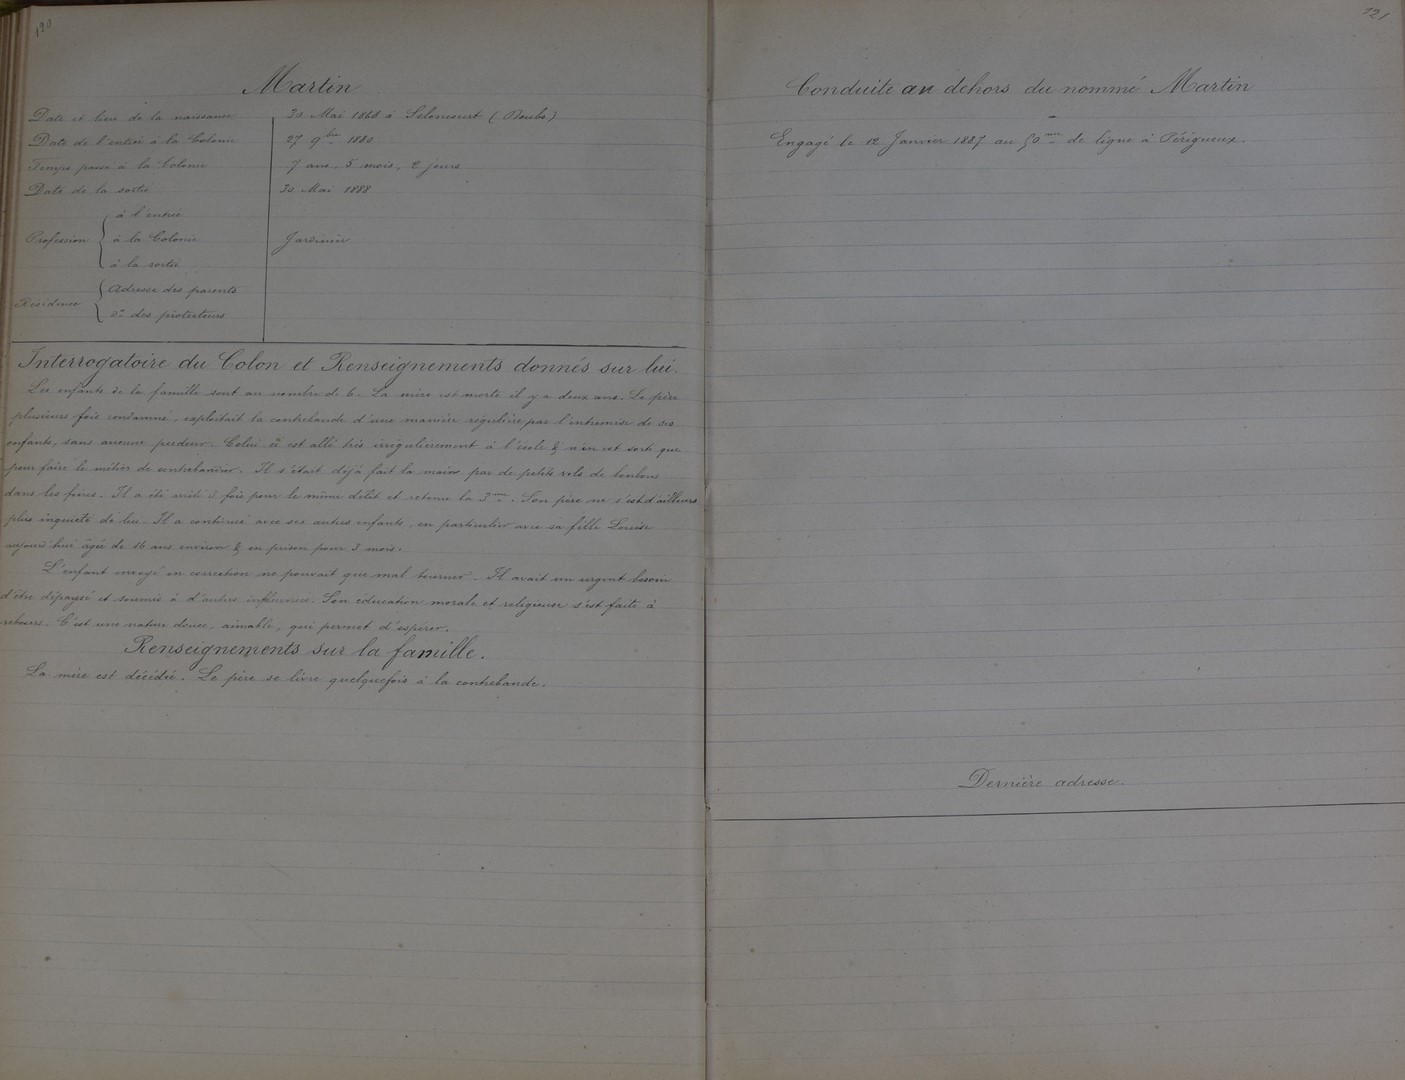 120
Martin
Date et lieu de la naissance 30 Mai 1868 à Seloncourt (Doubs)
Date de l'entrée à la Colonie 27 9bre 1880
Temps passé à la Colonie 7 ans, 5 mois, 2 jours
Date de la sortie 30 Mai 1888
Profession
à l'entrée
à la Colonie Jardinier
à la sortie
Résidence
Adresse des parents
do des protecteurs
Interrogatoire du Colon et Renseignements donnés sur lui.
Les enfants de la famille sont au nombre de 6. La mère est morte il y a deux ans. Le père
plusieurs fois condamné, exploitait la contrebande d'une manière régulière par l'entremise de ses
enfants, sans aucune pudeur. Celui ci est allé très irrégulièrement à l'école & n'en est sorti que
pour faire le métier de contrebandier. Il s'était déjà fait la main par de petits vols de bonbons
dans les foires. Il a été arrêté 3 fois pour le même délit et retenu la 3me. Son père ne s'est d'ailleurs
plus inquiété de lui. Il a continué avec ses autres enfants, en particulier avec sa fille Louise
aujourd'hui âgée de 16 ans environ & en prison pour 3 mois.
L'enfant envoyé en correction ne pouvait que mal tourner. Il avait un urgent besoin
d'être dépaysé et soumis à d'autres influences. Son éducation morale et religieuse s'est faite à
rebours. C'est une nature douce, aimable, qui permet d'espérer.
Renseignements sur la famille.
La mère est décédée. Le père se livre quelquefois à la contrebande.
121
Conduite au dehors du nommé Martin
Engagé le 12 Janvier 1887 au 50me de ligne à Périgueux.
Dernière adresse.